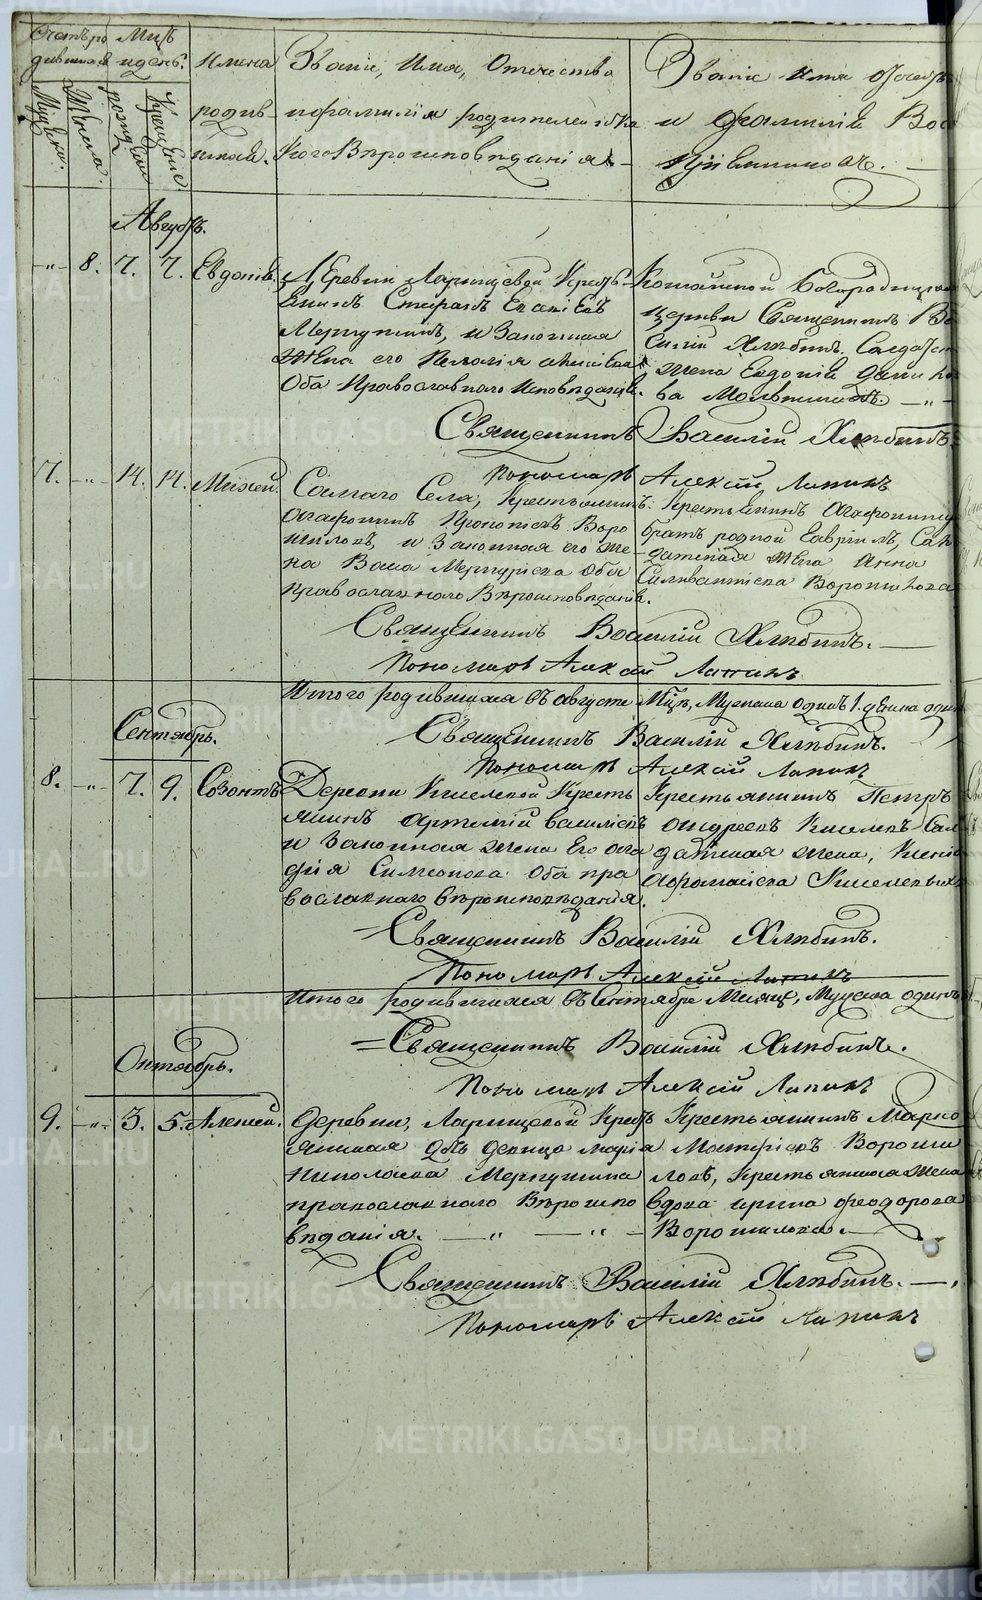 Счетъ ро Мцъ
дившихся и день.
Мужеска. Женска. рожденія Крещеніе.
Имена
родив-
шихся.
Званіе, Имя, Отчество
и фамилія родителей и ка
кого Вѣроисповѣданія
Званіе имя отечес
и фамилія Вос
пріемниковъ.
Августъ.
-"- 8. 7. 7. Евдокія.
Деревни Ларишевой Крестья-
янинъ Стефанъ
Меркушинъ, и Законная
Жена его Пелагія
Оба Православнаго Исповѣданія.
Богородицкой
церкви Священникъ Ва
силій Хлѣбинъ. Солдатск
жена Евдокія
ва
Священникъ Василій Хлѣбинъ
Пономарь Алексѣй Лапинъ
7. -"- 14. 14. Михей.
Самаго Села, Крестьянинъ
Агафонникъ Воро
шиловъ, и Законная его же-
на Васса Меркурьева Оба
православнаго Вѣроисповѣданія.
Крестьянинъ Агафонник
братъ родной Гавріилъ, Сал
датская жена Анна
Силивантьева Ворошилова
Священникъ Василій Хлѣбинъ.
Пономарь Алексѣй Лапинъ
Итого родившихся въ августѣ Мцѣ, Мужеска одинъ 1. Женска один
Священникъ Василій Хлѣбинъ.
Пономарь Алексѣй Лапинъ
Сентябрь.
8. -"- 7. 9. Созонтъ
Деревни Киселевой Кресть
янинъ Артемій Василіевъ
и Законная жена Его Ага
фія Симеонова Оба пра
вославнаго вѣроисповѣданія.
Крестьянинъ Петръ
Андреевъ Киселевъ Сал
датская жена, Ксені
Афонасіева Киселевыхъ
Священникъ Василій Хлѣбинъ.
Пономарь Алексѣй Лапинъ
Итого родившихся въ Сентябрѣ Месяцѣ, Мужеска одинъ
Священникъ Василій Хлѣбинъ.
Пономарь Алексѣй Лапинъ
Октябрь.
9. -"- 3. 5. Алексей.
Деревни, Ларишевой Кресть
янская дочь девица Марія
Николаева Меркушина
православнаго Вѣроиспо
вѣданія. — " — " —
Крестьянинъ Марко
Ворошиловъ, Крестьянская Жена
вдова Ирина Феодорова
Ворошилова. —
Священникъ Василій Хлѣбинъ.
Пономарь Алексѣй Лапинъ
METRIKI.GASO-URAL.RU